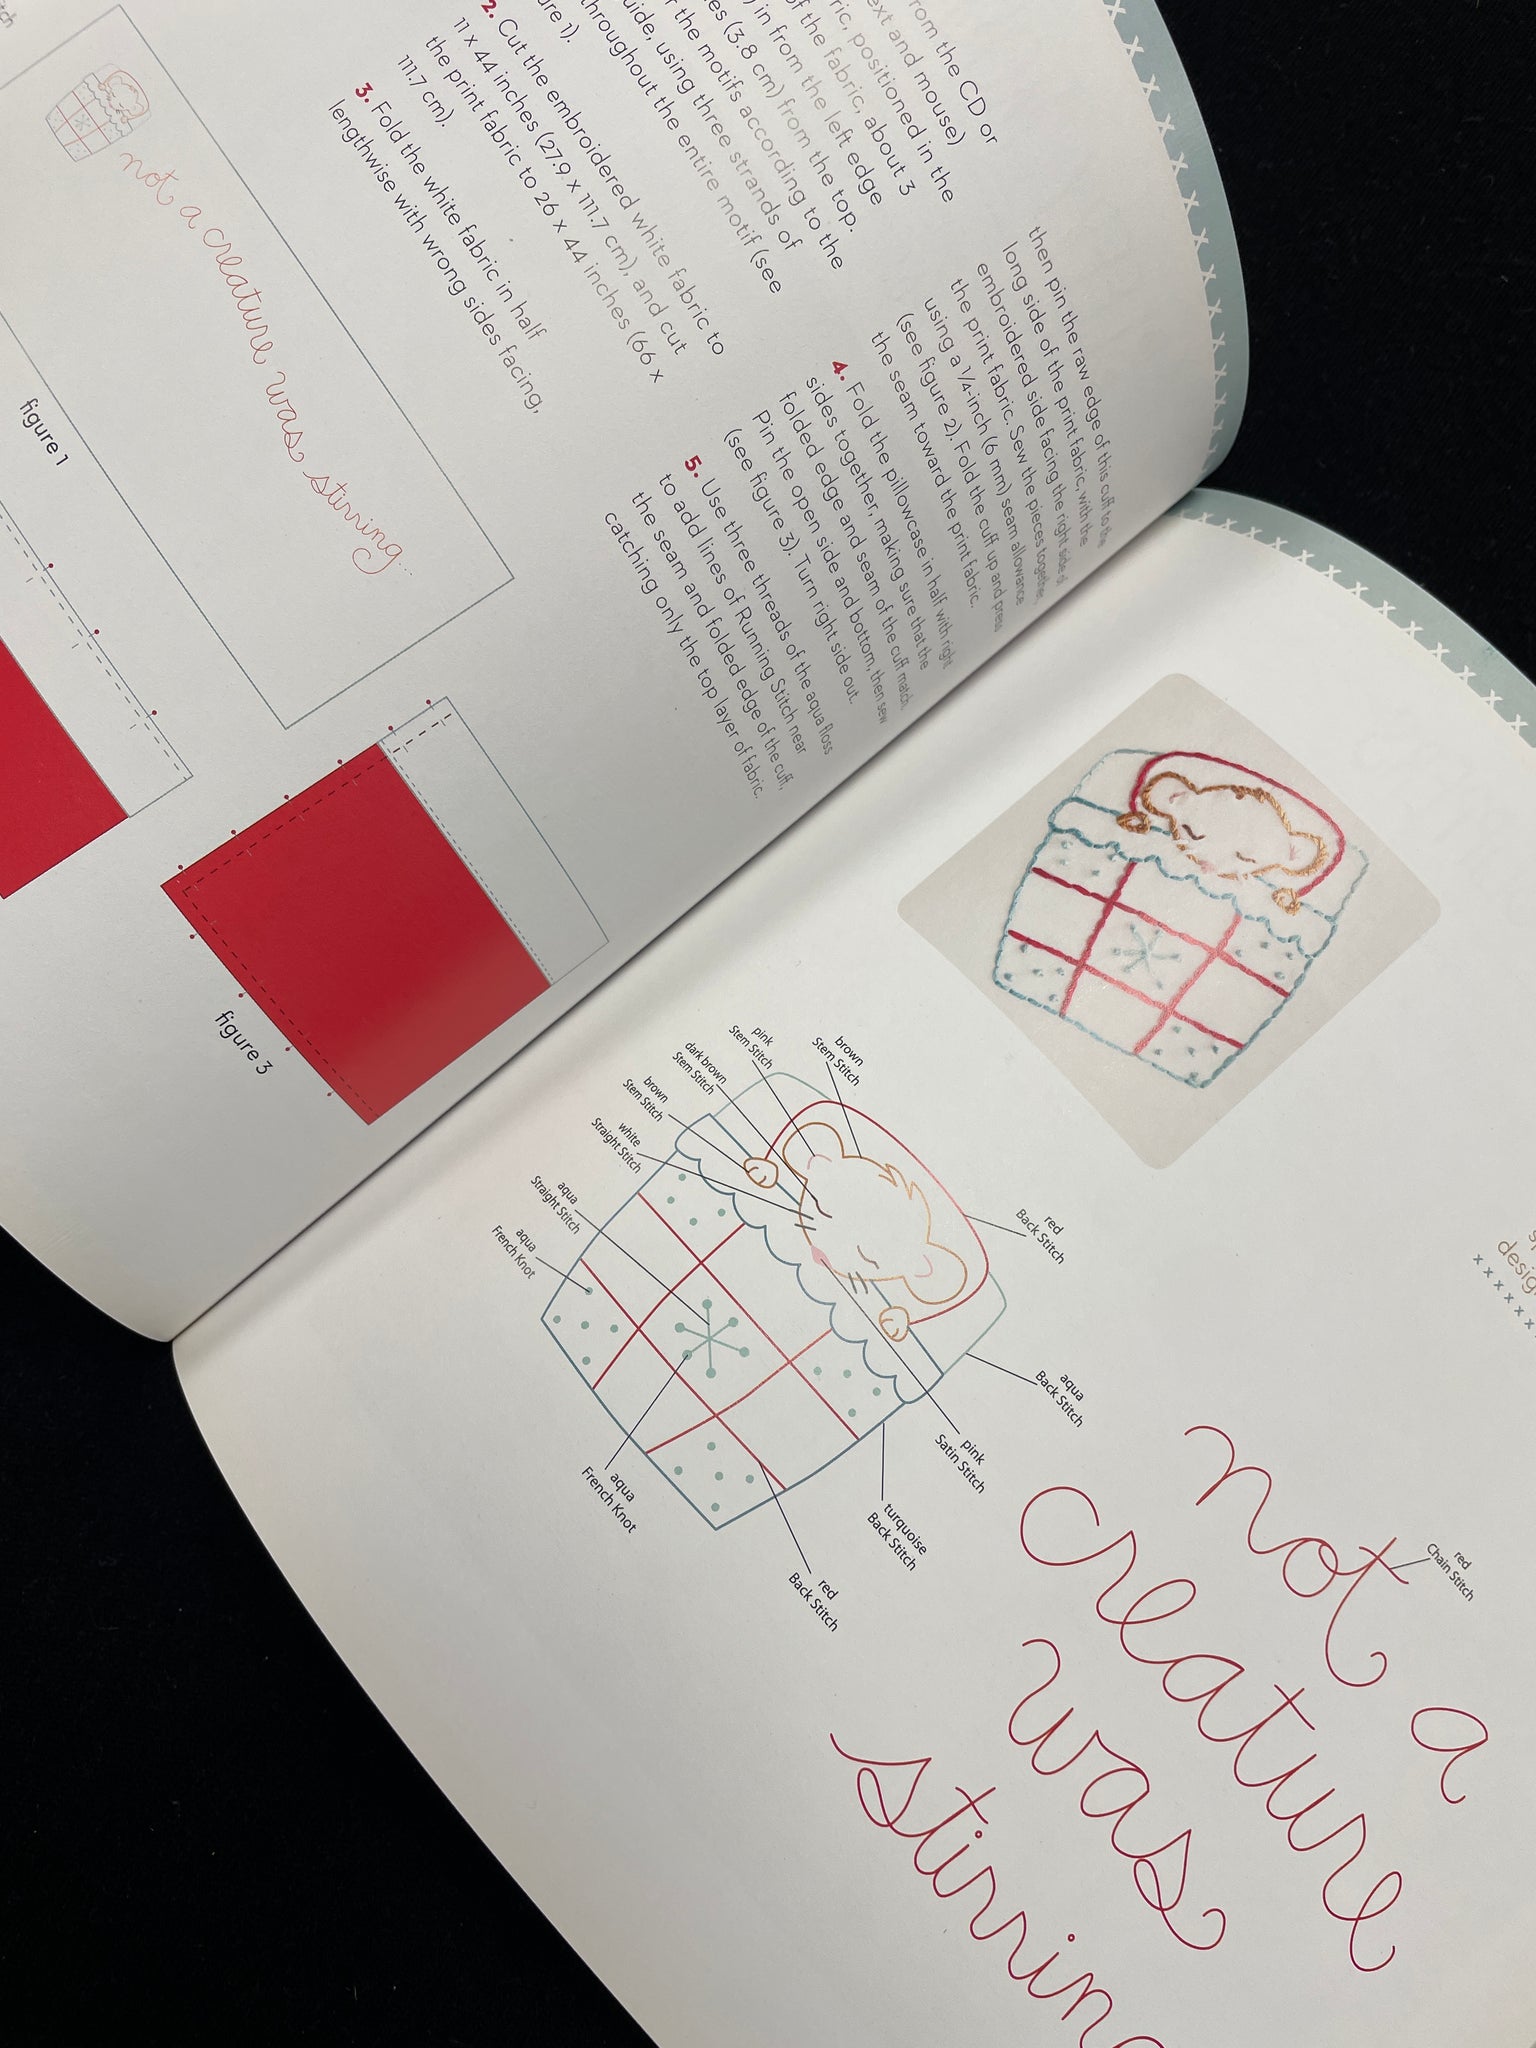 rom the CD or
ext and mouse)
ric, positioned in the
of the fabric, about 3
) in from the left edge
es (3.8 cm) from the top.
r the motifs according to the
uide, using three strands of
throughout the entire motif (see
ure 1).
2. Cut the embroidered white fabric to
11 x 44 inches (27.9 x 111.7 cm), and cut
the print fabric to 26 x 44 inches (66 x
111.7 cm).
3. Fold the white fabric in half
lengthwise with wrong sides facing,
then pin the raw edge of this cuff to the
long side of the print fabric, with the
embroidered side facing the right side of
the print fabric. Sew the pieces together,
using a 1/4-inch (6 mm) seam allowance
(see figure 2). Fold the cuff up and press
the seam toward the print fabric.
4. Fold the pillowcase in half with right
sides together, making sure that the
folded edge and seam of the cuff match.
Pin the open side and bottom, then sew
(see figure 3). Turn right side out.
5. Use three threads of the aqua floss
to add lines of Running Stitch near
the seam and folded edge of the cuff,
catching only the top layer of fabric.
not a creature was stirring...
figure 1
figure 3
brown
Stem Stitch
pink
Stem Stitch
dark brown
Stem Stitch
brown
Stem Stitch
white
Straight Stitch
aqua
Straight Stitch
aqua
French Knot
aqua
French Knot
red
Back Stitch
aqua
Back Stitch
pink
Satin Stitch
turquoise
Back Stitch
red
Back Stitch
desig
red
Chain Stitch
not a
creature
was
stirring